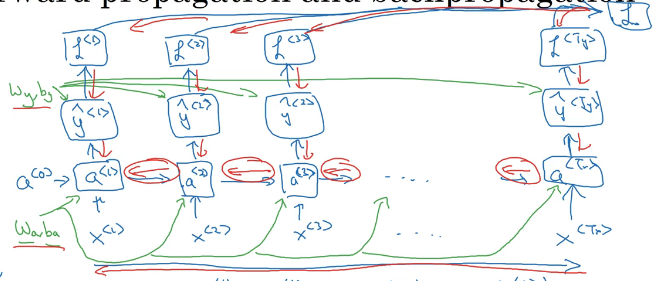 forward propagation and backpropagation
L
L<1> L<2> L<3> L<Ty>
Wy,by
ŷ<1> ŷ<2> ŷ<2> ŷ<Ty>
a<0> a<1> a<2> a<3> .... a<Tx>
Wa,ba
x<1> x<2> x<3> .... x<Tx>